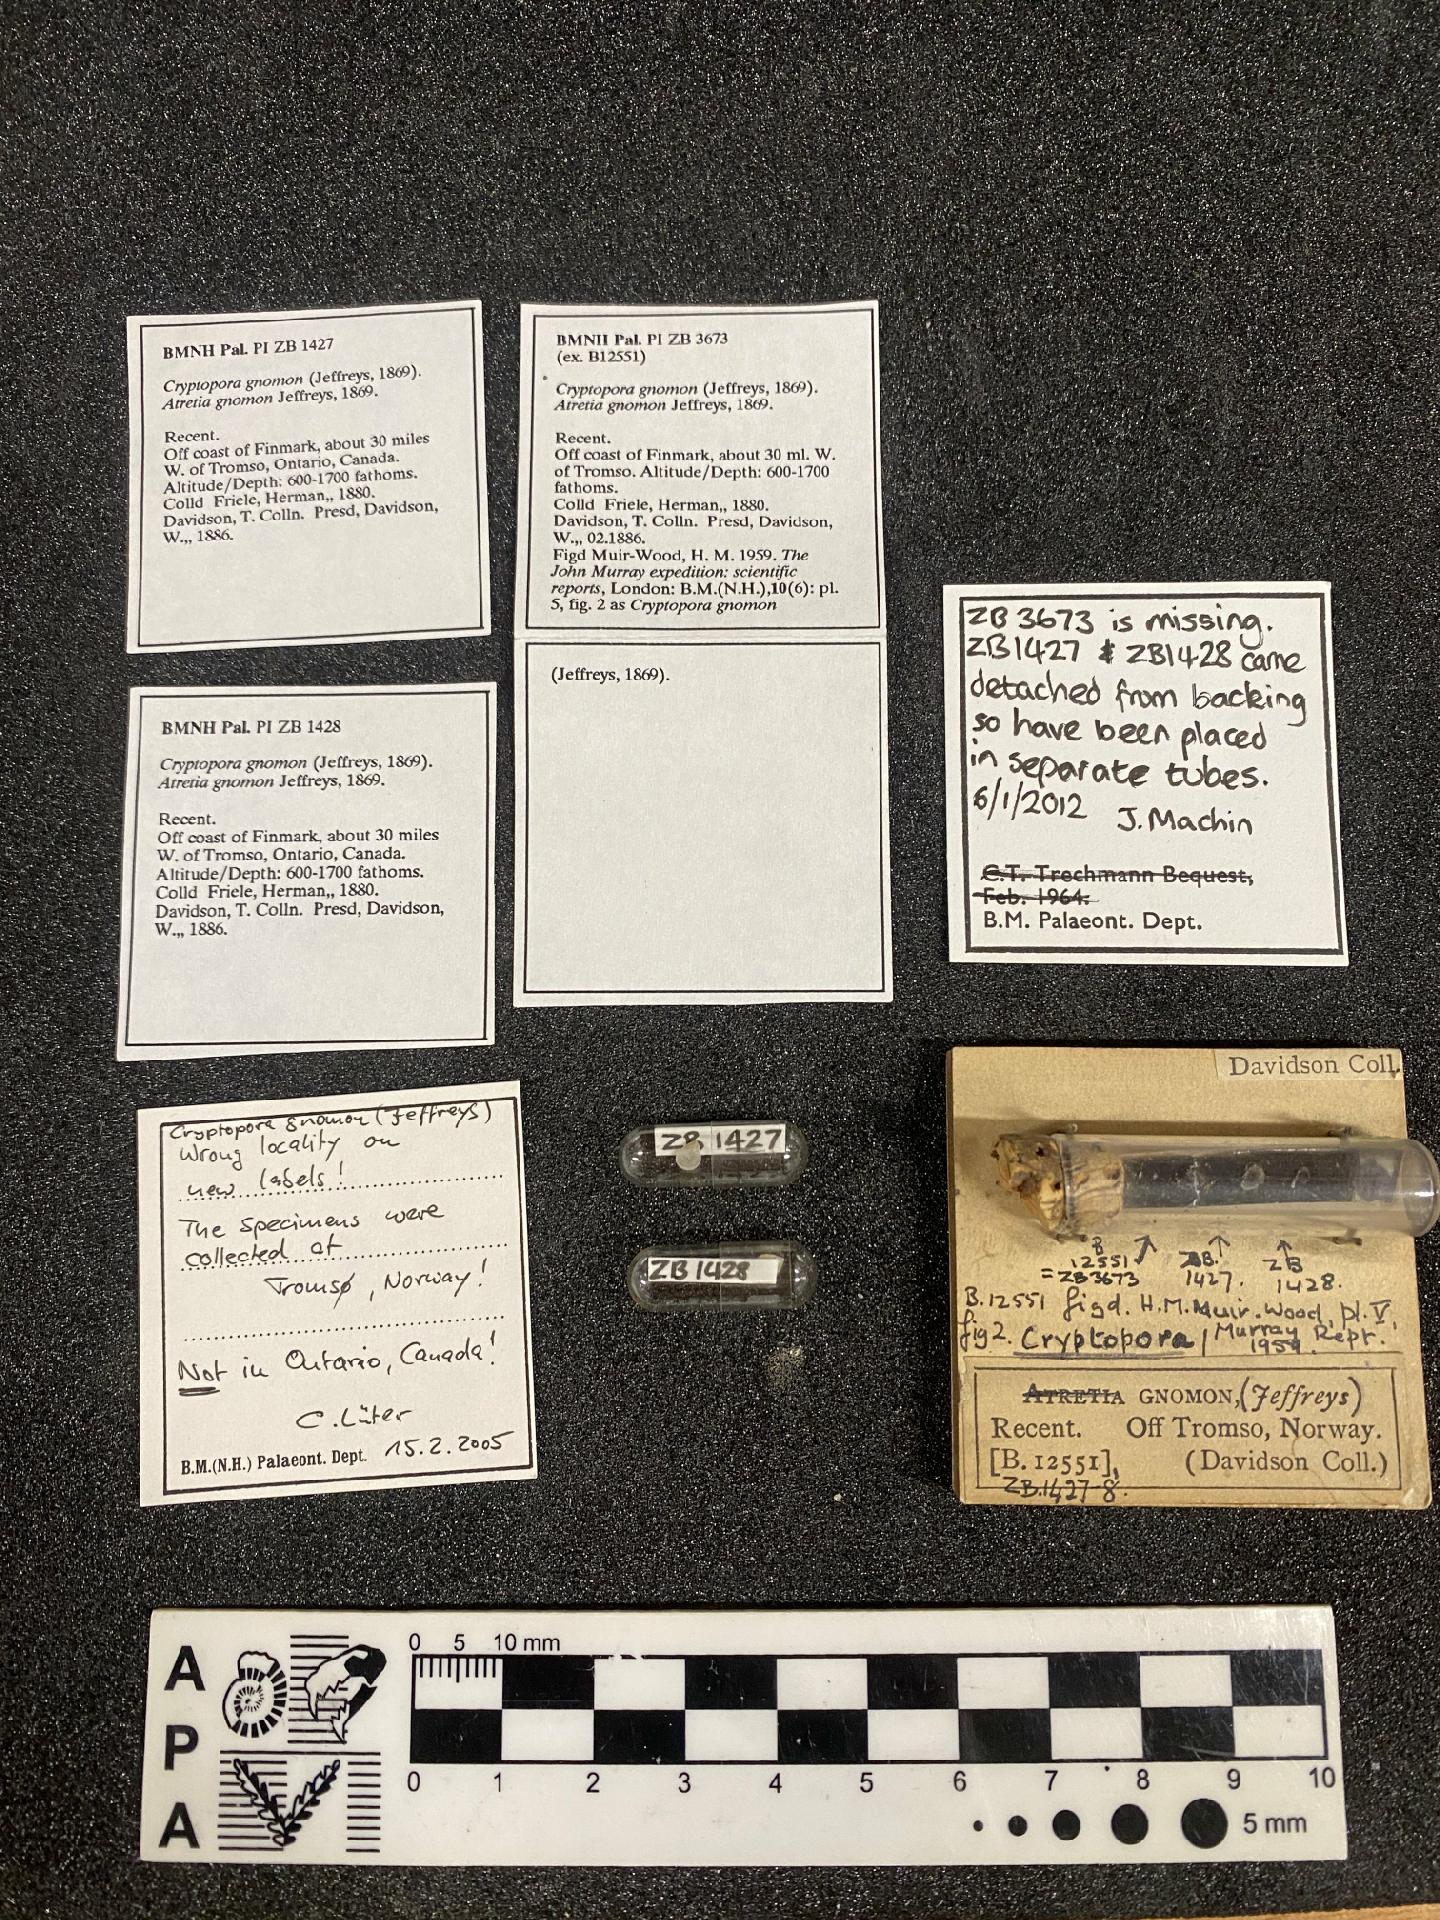 BMNH Pal. PI ZB 1427
Cryptopora gnomon (Jeffreys, 1869).
Atretia gnomon Jeffreys, 1869.
Recent.
Off coast of Finmark, about 30 miles
W. of Tromso, Ontario, Canada.
Altitude/Depth: 600-1700 fathoms.
Colld Friele, Herman,, 1880.
Davidson, T. Colln. Presd, Davidson,
W.,, 1886.
BMNH Pal. PI ZB 3673
(ex. B12551)
Cryptopora gnomon (Jeffreys, 1869).
Atretia gnomon Jeffreys, 1869.
Recent.
Off coast of Finmark, about 30 ml. W.
of Tromso. Altitude/Depth: 600-1700
fathoms.
Colld Friele, Herman,, 1880.
Davidson, T. Colln. Presd, Davidson,
W.,, 02.1886.
Figd Muir-Wood, H. M. 1959. The
John Murray expedition: scientific
reports, London: B.M.(N.H.),10(6): pl.
5, fig. 2 as Cryptopora gnomon
(Jeffreys, 1869).
ZB 3673 is missing.
ZB1427 & ZB1428 came
detached from backing
so have been placed
in separate tubes.
6/1/2012 J. Machin
C.T. Trechmann Bequest,
Feb. 1964.
B.M. Palaeont. Dept.
BMNH Pal. PI ZB 1428
Cryptopora gnomon (Jeffreys, 1869).
Atretia gnomon Jeffreys, 1869.
Recent.
Off coast of Finmark, about 30 miles
W. of Tromso, Ontario, Canada.
Altitude/Depth: 600-1700 fathoms.
Colld Friele, Herman,, 1880.
Davidson, T. Colln. Presd, Davidson,
W.,, 1886.
Cryptopora gnomon (Jeffreys)
Wrong locality on
new labels!
The specimens were
collected at
Tromsø, Norway!
Not in Ontario, Canada!
C. Lüter
B.M.(N.H.) Palaeont. Dept. 15.2.2005
ZB 1427
ZB 1428
Davidson Coll.
B
12551
= ZB3673
ZB.
1427.
ZB
1428.
B.12551 figd. H.M. Muir-Wood, pl. V,
fig 2. Cryptopora / Murray Rept.
1959.
ATRETIA GNOMON, (Jeffreys)
Recent. Off Tromso, Norway.
[B. 12551], (Davidson Coll.)
ZB.1427-8.
A
P
A
0 5 10 mm
0 1 2 3 4 5 6 7 8 9 10
5 mm